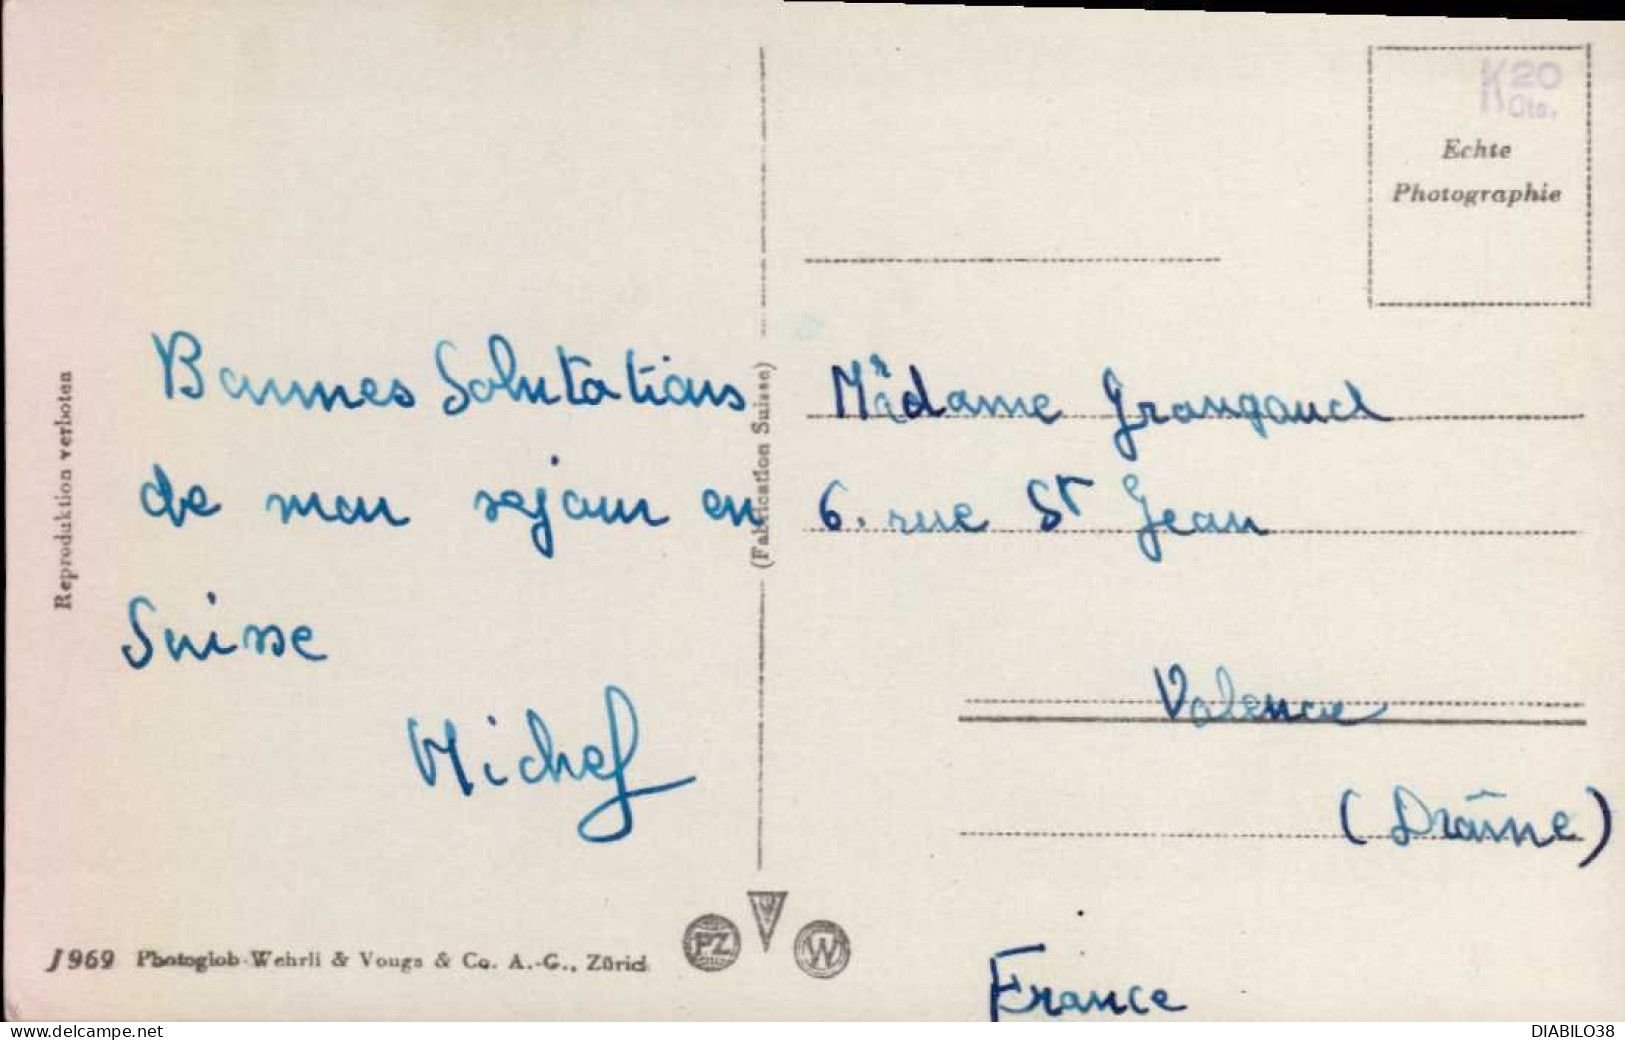 Reproduktion verboten
Bonnes Salutations
de mon sejour en
Suisse
Michel
J 969 Photoglob-Wehrli & Vouga & Co. A.-G., Zürich
(Fabrication Suisse)
PZ
W
K 20
Cts.
Echte
Photographie
Madame Grangaud
6. rue St Jean
Valence
(Drôme)
France
www.delcampe.net
DIABILO38